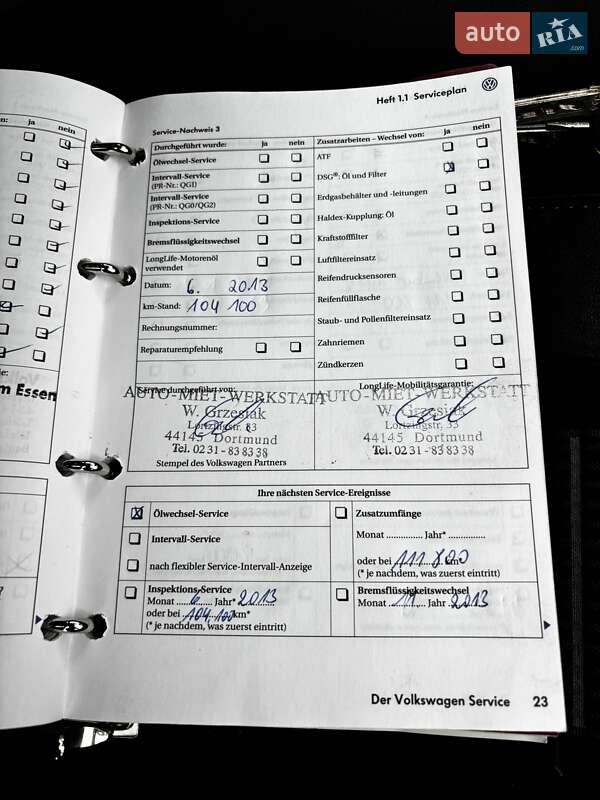 auto RIA .com
Heft 1.1 Serviceplan
Service-Nachweis 3
Durchgeführt wurde: ja nein
Ölwechsel-Service
Intervall-Service
(PR-Nr.: QGI)
Intervall-Service
(PR-Nr.: QG0/QG2)
Inspektions-Service
Bremsflüssigkeitswechsel
LongLife-Motorenöl
verwendet
Datum: 6. 2013
km-Stand: 104 100
Rechnungsnummer:
Reparaturempfehlung
Zusatzarbeiten – Wechsel von: ja nein
ATF
DSG®: Öl und Filter
Erdgasbehälter und -leitungen
Haldex-Kupplung: Öl
Kraftstofffilter
Luftfiltereinsatz
Reifendrucksensoren
Reifenfüllflasche
Staub- und Pollenfiltereinsatz
Zahnriemen
Zündkerzen
Service durchgeführt von:
AUTO-MIET-WERKSTATT
W. Grzesiak
Lortzingstr. 33
44145 Dortmund
Tel. 0231-838338
Stempel des Volkswagen Partners
LongLife-Mobilitätsgarantie:
AUTO-MIET-WERKSTATT
W. Grzesiak
Lortzingstr. 33
44145 Dortmund
Tel. 0231-838338
Ihre nächsten Service-Ereignisse
Ölwechsel-Service
Intervall-Service
nach flexibler Service-Intervall-Anzeige
Zusatzumfänge
Monat ............... Jahr* ...............
oder bei 111 800 km*
(* je nachdem, was zuerst eintritt)
Inspektions-Service
Monat 6 Jahr* 2013
oder bei 104.100 km*
(* je nachdem, was zuerst eintritt)
Bremsflüssigkeitswechsel
Monat 11 Jahr 2013
Der Volkswagen Service 23
ja nein
m Essen